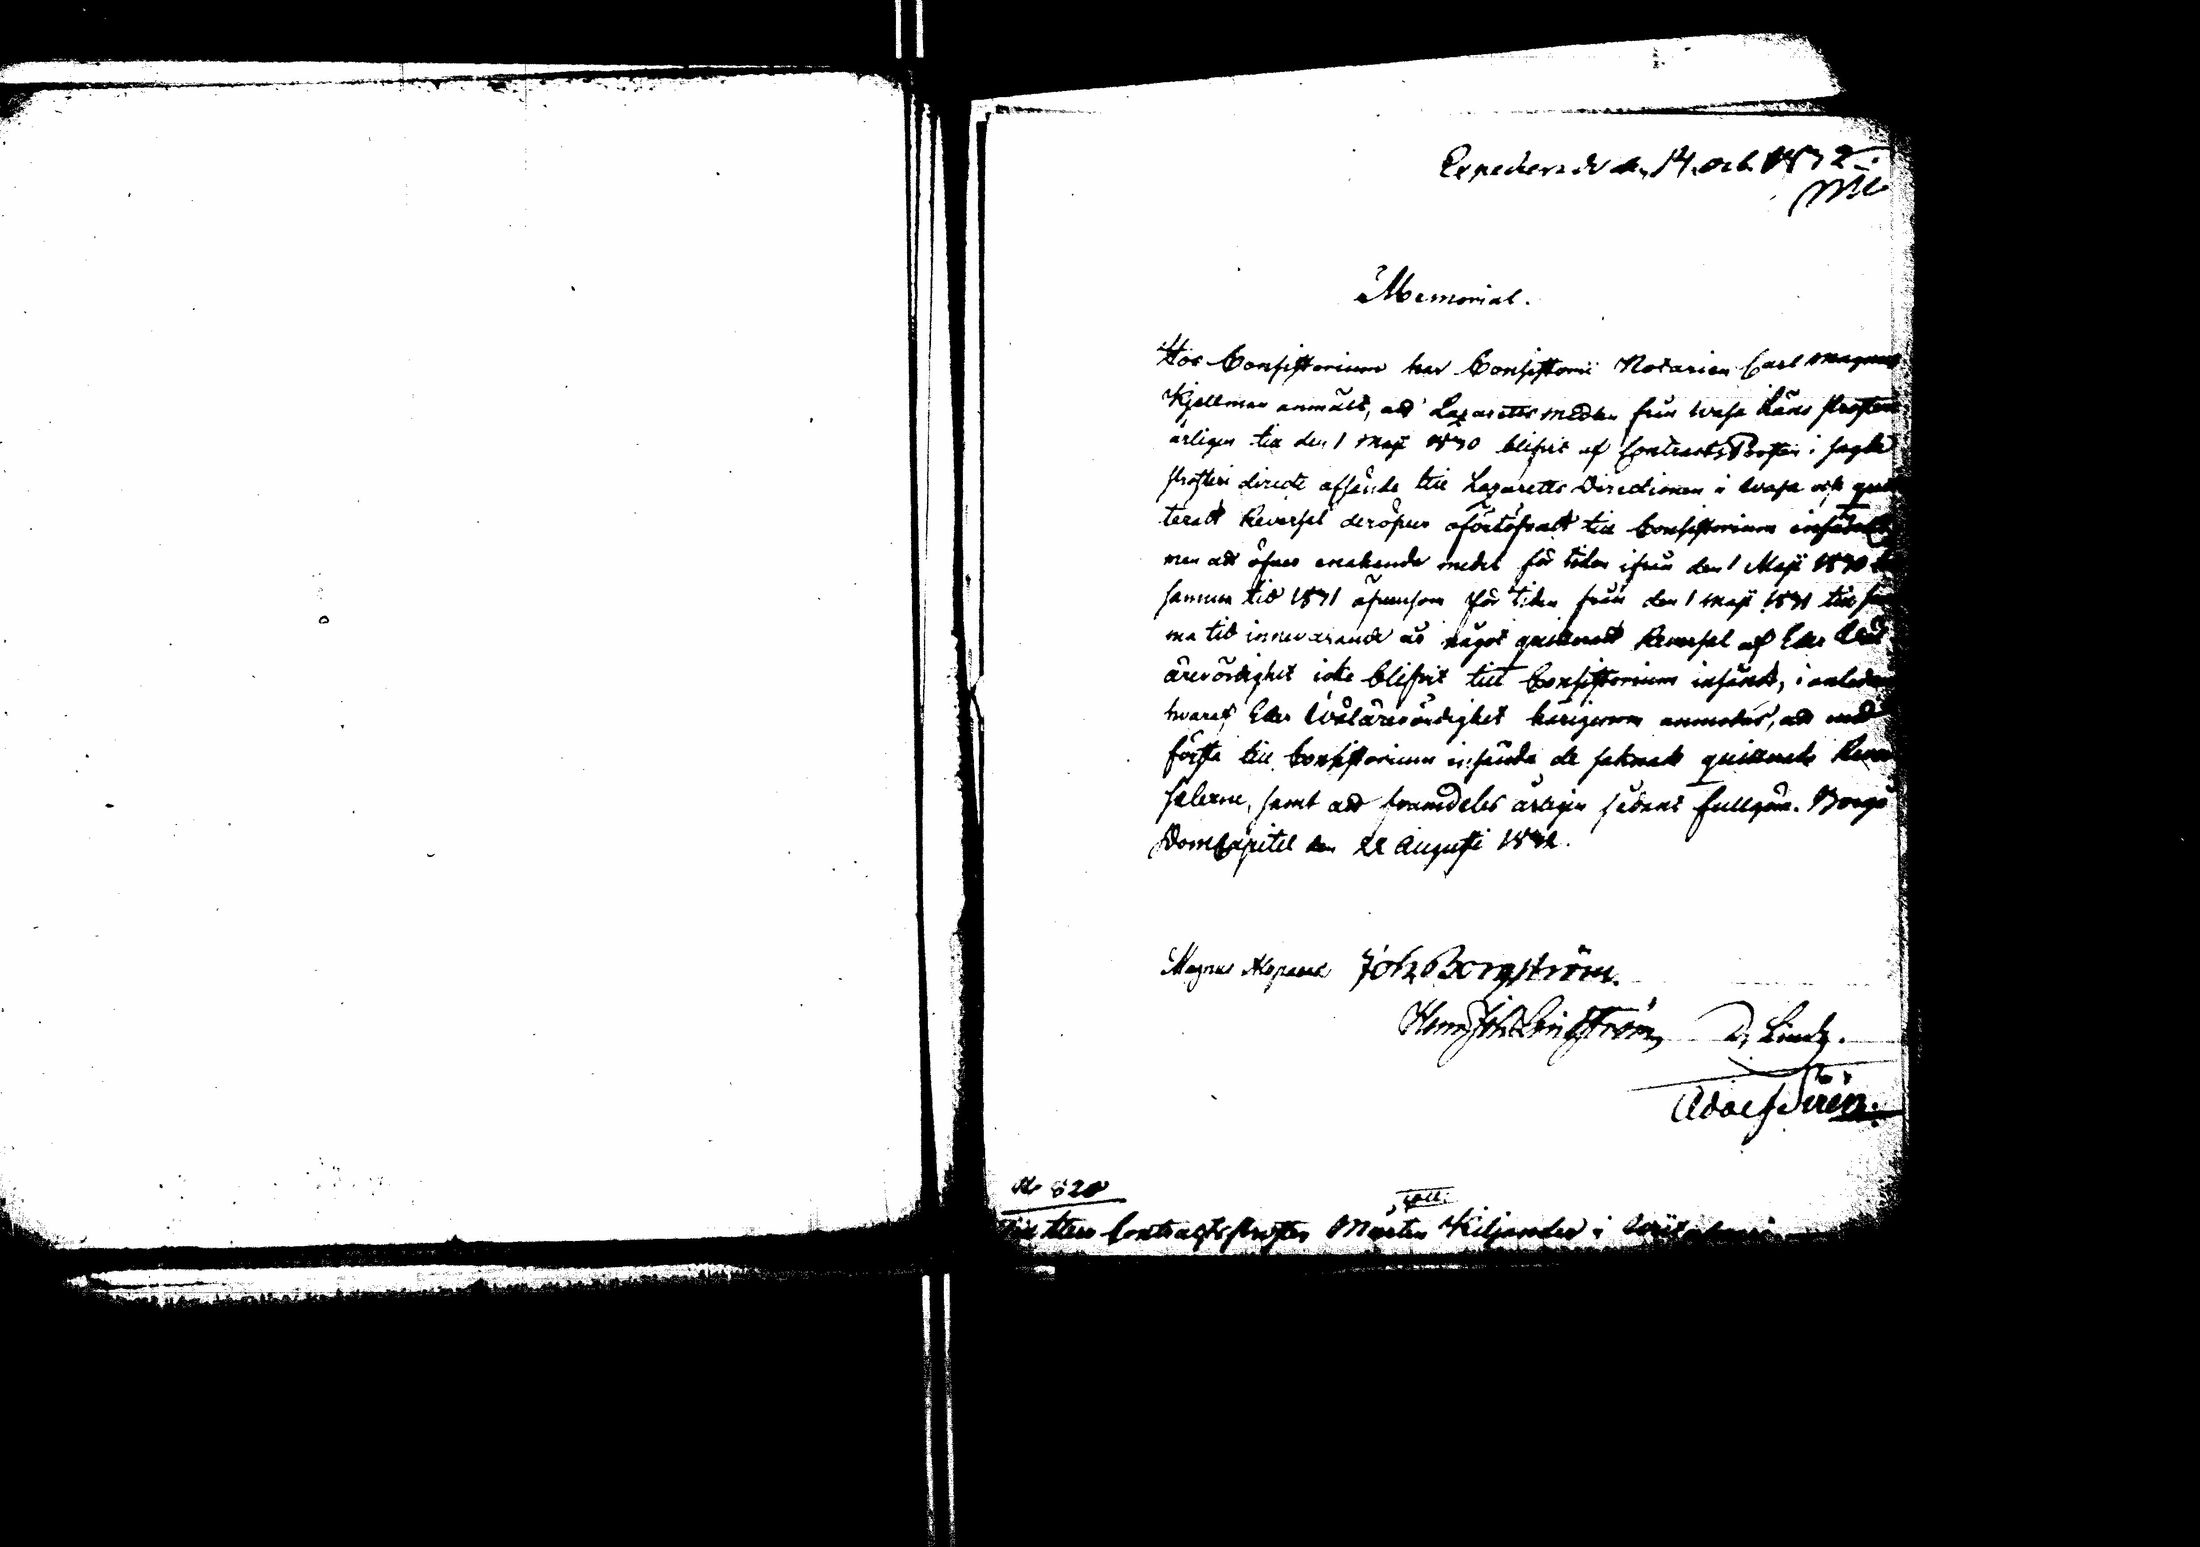 Expedierade d. 14 Oct. 1832.
MK
Memorial.
Hos Consistorium har Consistorii Notarien Carl Magnus
Kjellman anmält, att Lazaretts medlen från Wasa Läns Prosteri
årligen till den 1 Maji 1830 blifvit af Contracts Prosten i sagde
Prosteri directe afsände till Lazaretts Directionen i Wasa och quit-
teradt Reversal deröfver oförtöfvadt till Consistorium insändt
men att öfver enahanda medel för tiden ifrån den 1 Maji 1830 till
samma tid 1831 äfvensom för tiden från den 1 Maji 1831 till sam-
ma tid innevarande år något quitteradt Reversal af Eder Wäl-
ärevördighet icke blifvit till Consistorium insändt, i anledning
hvaraf Eder Wälärevördighet härigenom anmodas, att med
första till Consistorium insända de saknade quitterade Rever-
salerne, samt att framdeles årligen sådant fullgöra. Borgå
DomCapitel den 22 Augusti 1832.
Magnus Alopaeus Joh. Borgström.
Henr. Joh. Lindström
Adolf
No 820
Till Herr Contracts Prosten Mårten Kiljander i